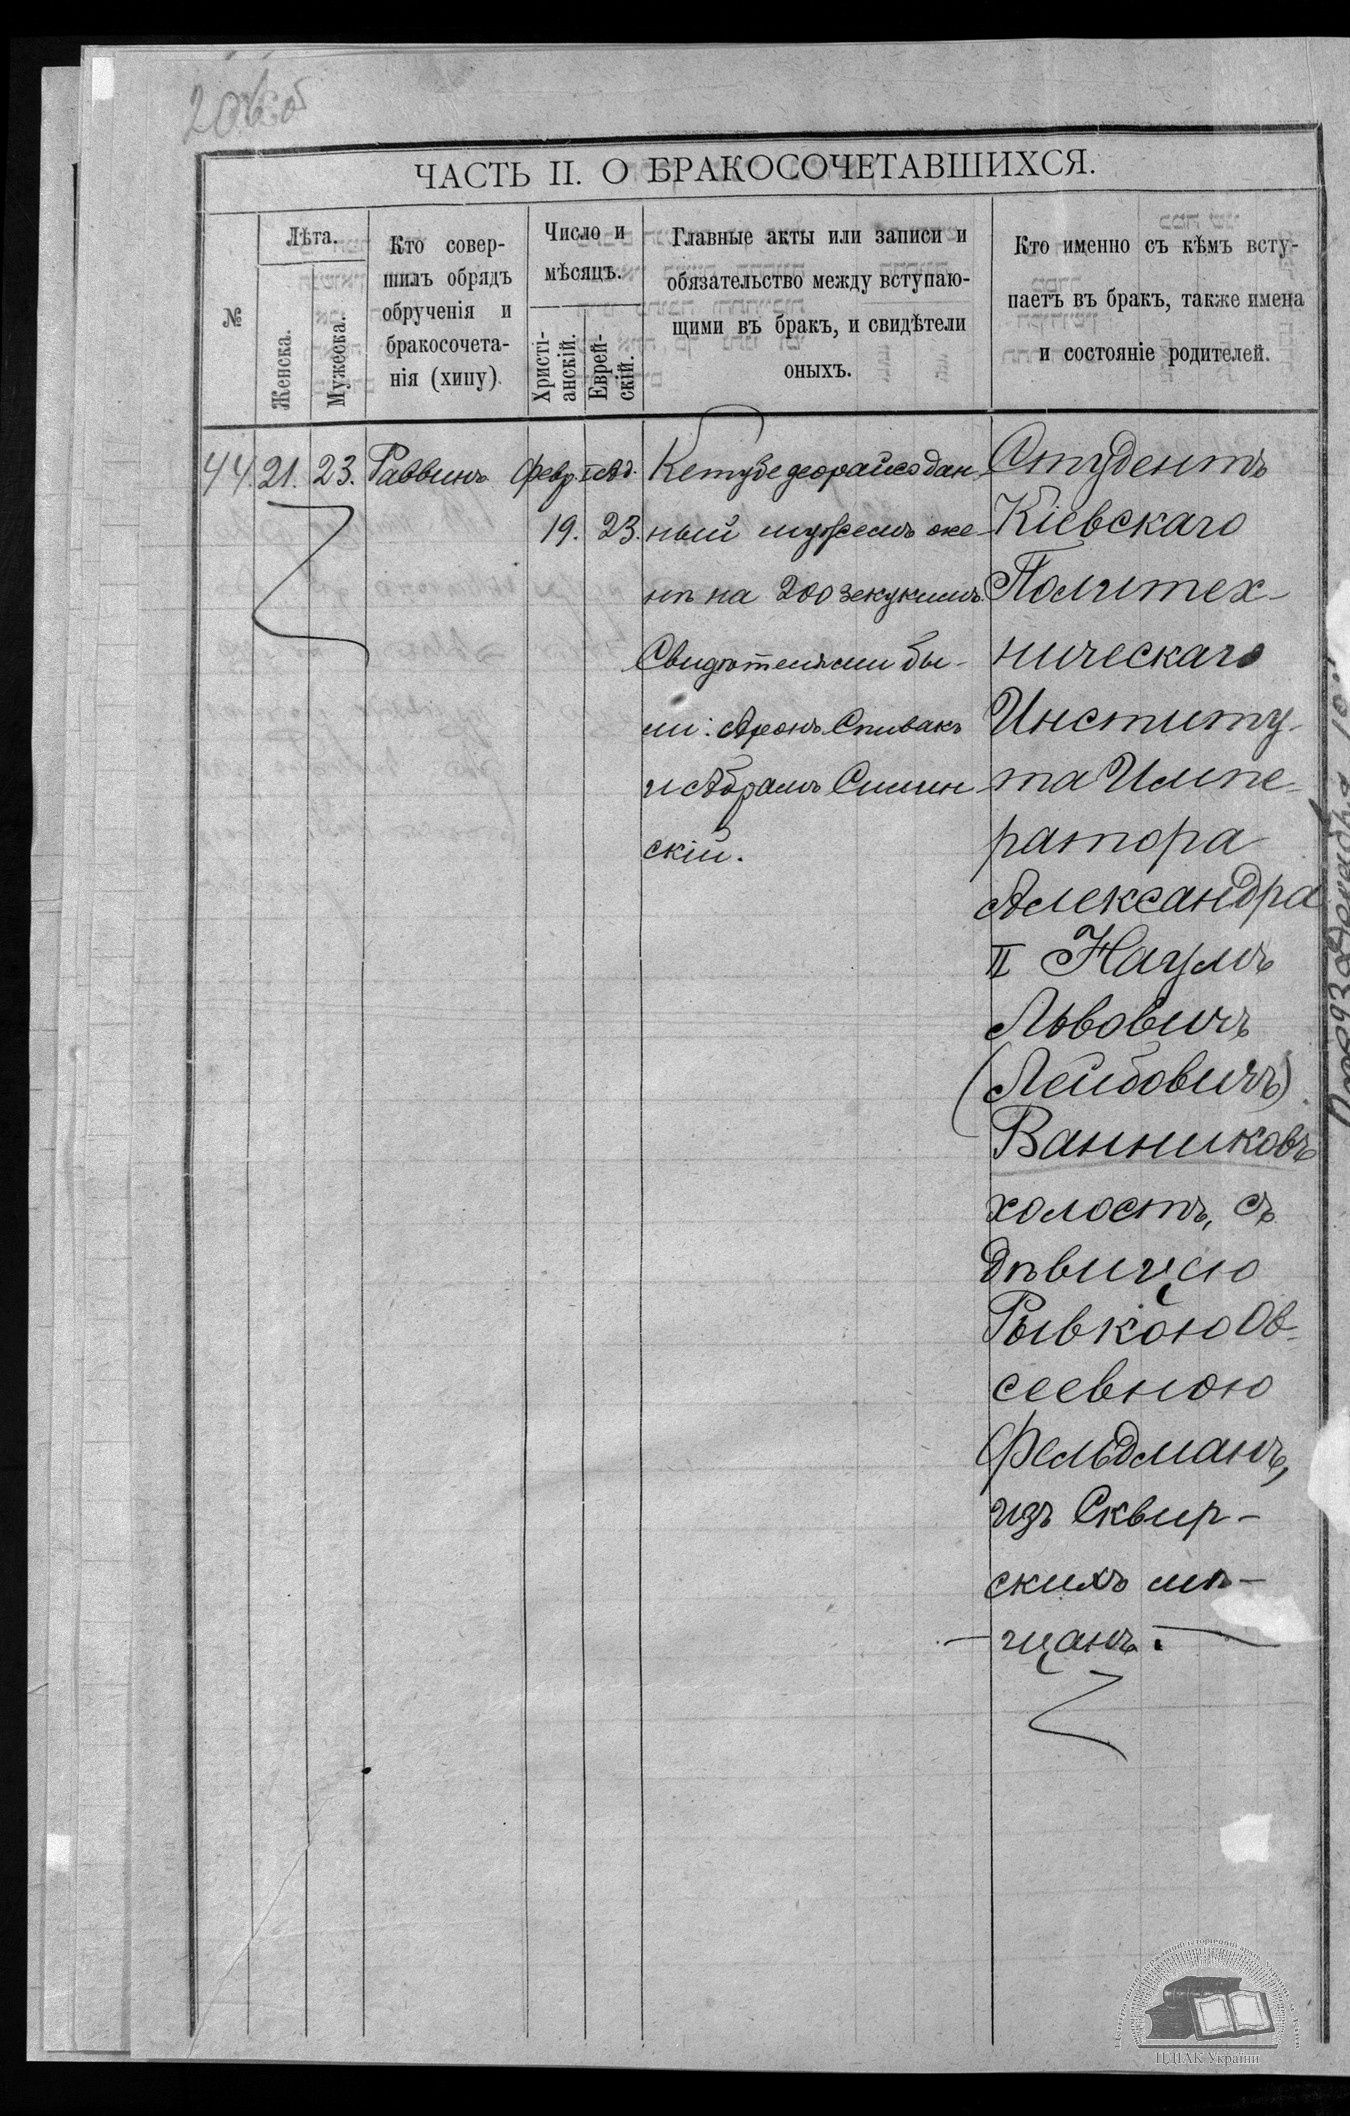 206об
ЧАСТЬ II. О БРАКОСОЧЕТАВШИХСЯ.
№
Лѣта.
Женска.
Мужеска.
Кто совер-
шилъ обрядъ
обрученія и
бракосочета-
нія (хипу).
Число и
мѣсяцъ.
Христі-
анскій.
Еврей-
скій.
Главные акты или записи и
обязательство между вступаю-
щими въ бракъ, и свидѣтели
оныхъ.
Кто именно съ кѣмъ всту-
паетъ въ бракъ, также имена
и состояніе родителей.
44. 21. 23. Раввинъ Февр.
19. 23.
Кетубе деорайсо дан-
ный мужемъ же-
нѣ на 200 зекукимъ.
Свидѣтелями бы-
ли: Аронъ Спивакъ
и Абрамъ Силин-
скій.
Студентъ
Кіевскаго
Политех-
ническаго
Институ-
та Импе-
ратора
Александра
II Наумъ
Львовичъ
(Лейбовичъ)
Ванниковъ
холостъ, съ
дѣвицею
Рывкою Ов-
сеевною
Фельдманъ,
изъ Сквир-
скихъ мѣ-
щанъ.
ЦДІАК України